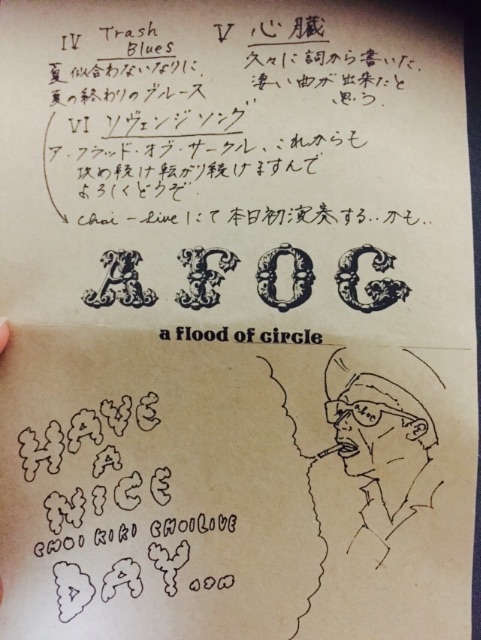 IV Trash Blues
夏似合わないなりに、
夏の終わりのブルース
V 心臓
久々に詞から書いた。
凄い曲が出来たと
思う。
VI リヴェンジソング
ア・フラッド・オブ・サークル、これからも
攻め続け転がり続けますんで
よろしくどうぞ。
choi-liveにて本日初演奏する‥かも‥
AFOC
a flood of circle
HAVE
A
NICE
CHOI KIKI CHOILIVE
DAY...
afoc